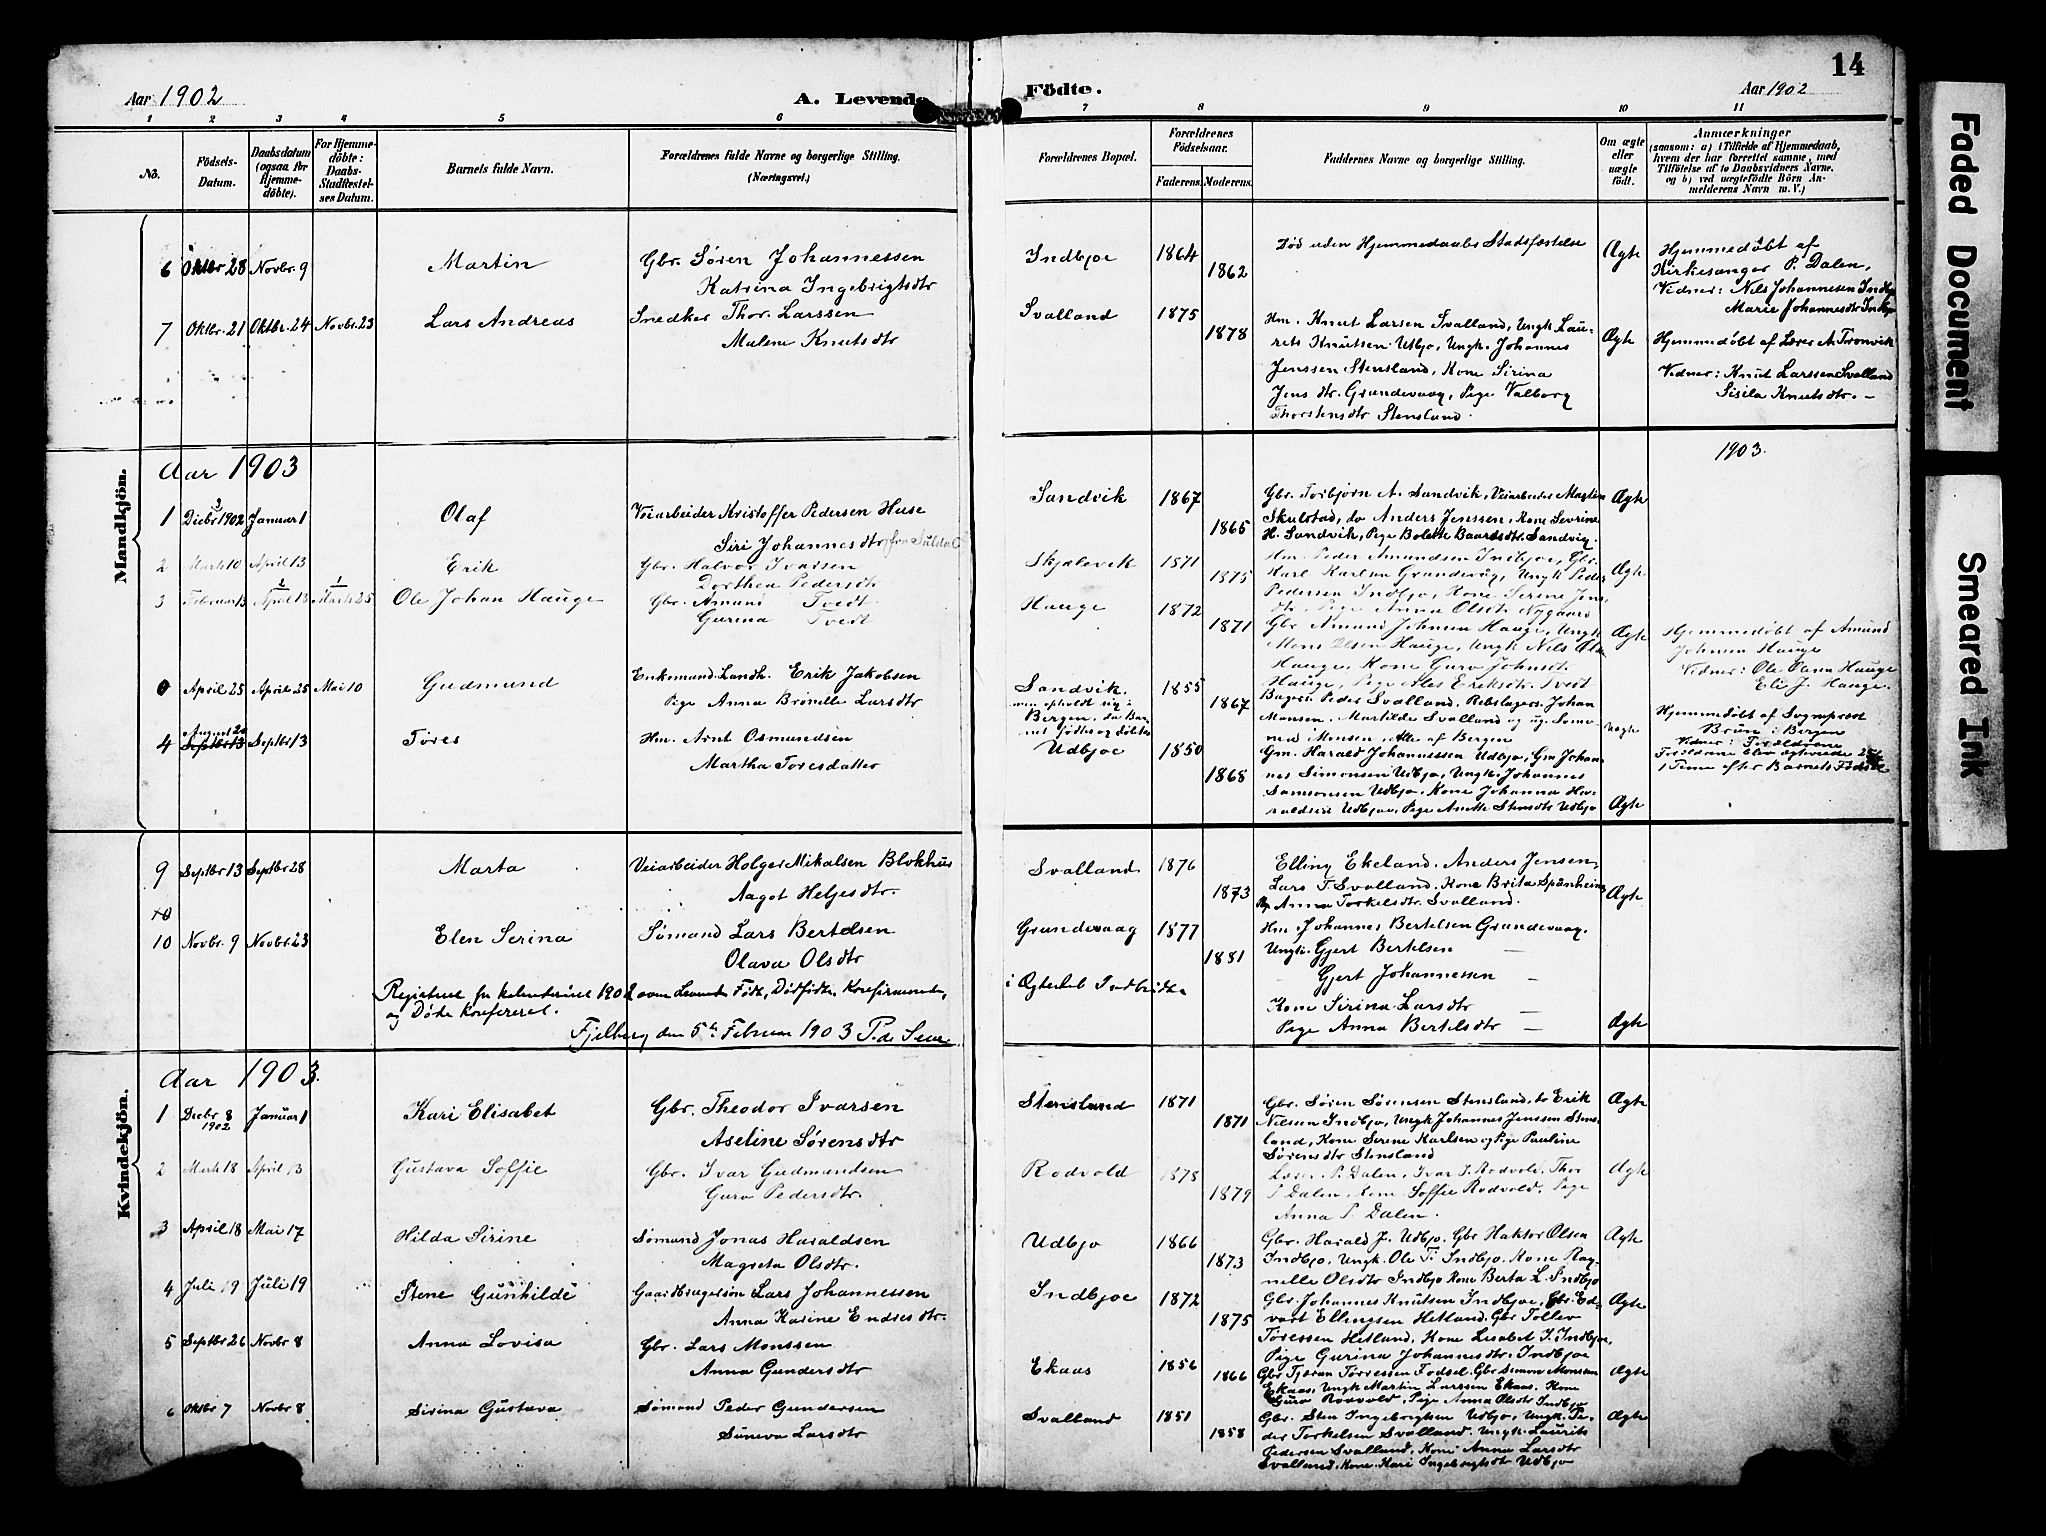 14
Aar 1902
A. Levende
Födte.
Aar 1902
1 2 3 4 5 6 7 8 9 10 11
No.
Födsels-Datum.
Daabsdatum (ogsaa for Hjemme-döbte).
For Hjemme-döbte: Daabs-Stadfæstel-ses Datum.
Barnets fulde Navn.
Forældrenes fulde Navne og borgerlige Stilling. (Næringsvei.)
Forældrenes Bopæl.
Forældrenes Födselsaar.
Faderens. Moderens.
Faddernes Navne og borgerlige Stilling.
Om ægte eller uægte födt.
Anmærkninger
(saasom: a) i Tilfælde af Hjemmedaab, hvem der har forrettet samme, med Tilföielse af to Daabsvidners Navne, og b) ved uægtefödte Börn An-melderens Navn m. V.)
6 Oktbr 28 Novbr. 9 Martin Gbr. Søren Johannessen
Katrina Ingebrigtsdtr
Indbjoe 1864 1862 Død uden Hjemmedaabs Stadfæstelse Ægte
Hjemmedøbt af
Kirkesanger P. Dalen,
Vidner: Nils Johannesen Indbjo
Marie Johannesdtr Indbjo
7 Oktbr. 21 Oktbr. 24 Novbr. 23 Lars Andreas Snedker Thor. Larssen
Malene Knutsdtr
Svalland 1875 1878 Hm. Knut Larsen Svalland, Ungk. Lau-
rets Knutsen Udbjo, Ungk. Johannes
Jenssen Stensland, Kone Sirina
Jensdtr. Grundevaag, Pige Valborg
Thorstensdtr Stensland.
Ægte
Hjemmedøbt af Lærer A. Tronvik
Vidner: Knut Larssen Svalland
Sisila Knutsdtr.
Mandkjön.
Aar 1903
1903.
1 3 Decbr 1902 Januar 1 Olaf Veiarbeider Kristoffer Pedersen Huse
Siri Johannesdtr (fra Suldal
Sandvik 1867 1865 Gbr. Torbjørn A. Sandvik, Veiarbeider Martin
Skulstad, do Anders Jenssen, Kone Sevrine
H. Sandvik, Pige Bolette Baardsdtr. Sandvig.
Ægte
2 Marts 10 April 13 Erik Gbr. Halvor Ivarsen
Dorthea Pedersdtr
Skjelevik 1871 1875 Hm. Peder Amundsen Indbjoe, Gbr.
Karl Karlsen Grundevåg, Ungk Peder
Pedersen Indbjo, Kone Serine Jens
dtr, Pige Anna Olsdtr Nygaard
Ægte
3 Februar 13 2 April 13 1 Marts 25 Ole Johan Hauge Gbr. Amund Tvedt
Gurina Tvedt
Hauge 1872 1871 Gbr Amund Johnsen Hauge, Ungk
Mons Olsen Hauge, Ungk Nils Ols
Hauge, Kone Guro Johnsdtr.
Hauge, Pige Ales Eriksdtr. Tvedt
Ægte
Hjemmedøbt af Amund
Johnsen Hauge
Vidner: Ole Olsen Hauge
Eli J. Hauge.
0 April 25 April 25 Mai 10 Gudmund Enkemand Landh. Erik Jakobsen
Pige Anna Brønelle Larsdtr
Sandvik. 1855 1867
men opholdt sig i
Bergen, da Bar-
net fødtes og døbtes
Bager Peder Svalland, Rebslager Johan
Monsen, Martilde Svalland
Monsen, Alle af Bergen
Uægte
Hjemmedøbt af Sogneprest
Brun i Bergen
Vidner: Forældrene
Forældrene blev ægteviede
1 Time efter Barnets Fødsel
4 August 20 Septbr 13 Septbr 13 Tøres Hm. Arnt Osmundsen
Martha Toresdatter
Udbjoe 1850 1868 Gm. Harald Johannessen Udbjo, Gm Johan-
nes Simonsen Udbjo, Ungk. Johannes
Samsonsen Udbjo, Kone Johanna Ha-
raldsen Udbjoe, Pige Anette Stensdtr Udbjo
Ægte
9 Septbr 13 Septbr 28 Marta Veiarbeider Holger Mikalsen Blokhus
Aagot Heljesdtr.
Svalland 1876 1873 Elling Ekeland. Anders Jensen,
Lars T. Svalland. Kone Brita Spånheim
Pg. Anna Torkelsdtr. Svalland.
Ægte
10
10 Novbr. 9 Novbr. 23 Elen Serina Sømand Lars Bertelsen
Olava Olsdtr
Grundevaag 1877 1881 Hm. Johannes Bertelsen Grundevaag.
Ungk. Gjert Bertelsen —
Gjert Johannessen —
Kone Sirina Larsdtr —
Pige Anna Bertelsdtr —
Ægte
Registrene for Kalenderaaret 1902 over Levende Fødte, Dødfødte, Konfirmerede, i Ægteskab Indtrådte
og Døde konfereret.
Fjelberg den 5te Februar 1903
Kvindekjön.
Aar 1903.
1 Decbr 8 1902 Januar 1 Kari Elisabet Gbr. Theodor Ivarsen
Aseline Sørensdtr
Stensland 1871 1871 Gbr. Søren Sørensen Stensland, do Erik
Nielsen Indbjo, Ungk Johannes Jenssen Stens-
land, Kone Serene Karlsen og Pige Pauline
Sørensdtr Stensland
Ægte
2 Marts 18 April 13 Gustava Soffie Gbr. Ivar Gudmundsen
Guro Pedersdtr.
Rodvold 1878 1879 Lærer P. Dalen, Ivar I. Rodvold, Thor
P. Dalen, Kone Soffie Rodvold, Pige
Anna P. Dalen.
Ægte
3 April 18 Mai 17 Hilda Sirine Sømand Jonas Haraldsen
Magreta Olsdtr.
Udbjo 1866 1873 Gbr. Harald J. Udbjo. Gbr Haktor Olsen
Indbjo. Ungk. Ole T. Indbjo. Kone Rag-
nelle Olsdtr Indbjo Kone Berta L. Indbjo
Ægte
4 Juli 19 Juli 19 Stene Gunhilde Gaardbrugersøn Lars Johannessen
Anna Karine Endresdtr.
Indbjoe 1872 1875 Gbr. Johannes Knutsen Indbjoe, Gbr. Ed-
vart Ellingsen Hetland. Gbr Tollev
Tøressen Hetland, Kone Lisabet I. Indbjoe,
Pige Gurina Johannesdtr. Indbjoe
Ægte
5 Septbr 26 Novbr 8 Anna Lovisa Gbr. Lars Monssen
Anna Gundersdtr
Ekaas 1856 1866 Gbr Tjeran Tørressen Fodsel. Gbr Simon Monsen
Ekaas, Ungk Martin Larssen Ekaas. Kone
Guro Rodvold, Pige Anna Olsdtr Indbjo
Ægte
6 Oktbr 7 Novbr 8 Sirina Gustava Sømand Peder Gundersen
Suneva Larsdtr
Svalland 1851 1858 Gbr. Sten Ingeborgtsen Udbjo, Ungk. Pe-
der Torkelsen Svalland. Ungk. Laurits
Pedersen Svalland, Kone Anna Larsdtr
Svalland. Kone Kari Ingebrigtsdtr Udbjo
Ægte
Faded Document
Smeared Ink